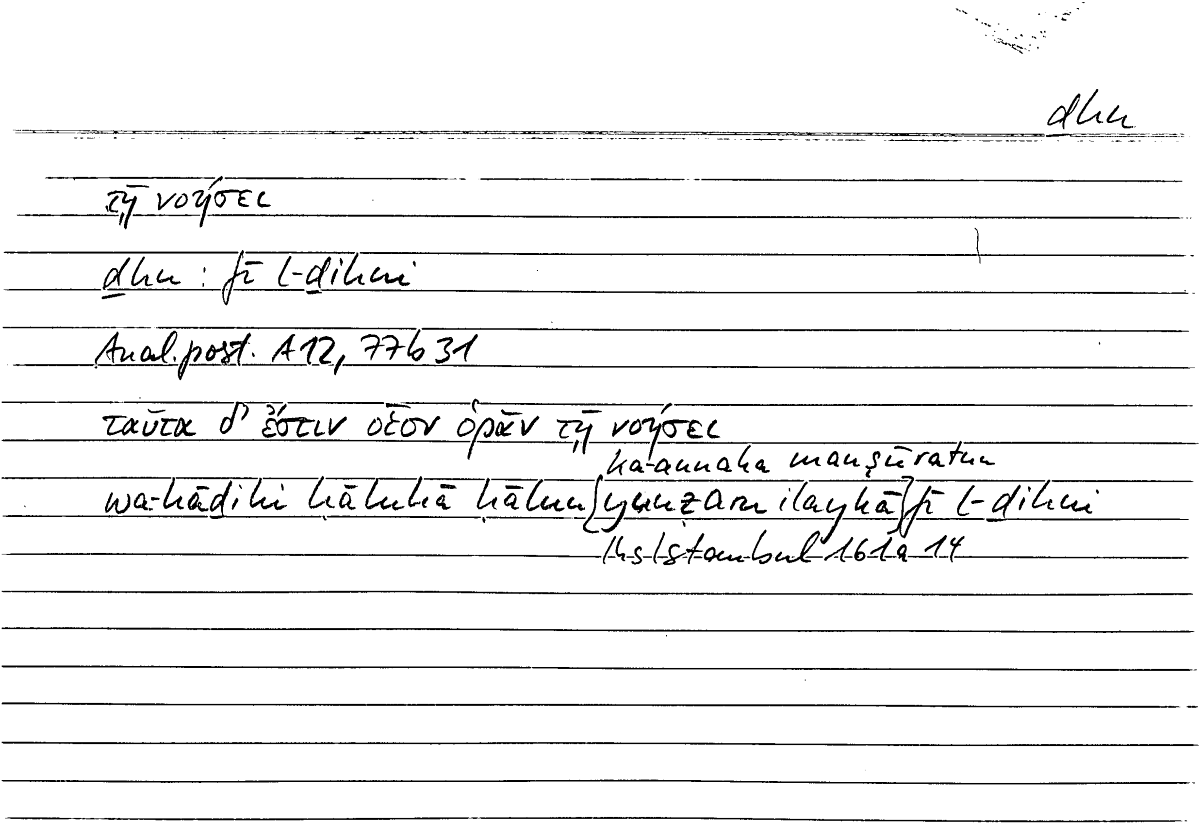 ḏhn
τῇ νοήσει
ḏhn : fī l-ḏihni
Anal.post. A12, 77b31
ταῦτα δ' ἔστιν οἷον ὁρᾶν τῇ νοήσει
ka-annaka manẓūratun
wa-hāḏihi ḥāluhā ḥālun {yunẓaru ilayhā} fī l-ḏihni
Hs Istambul 161a 14